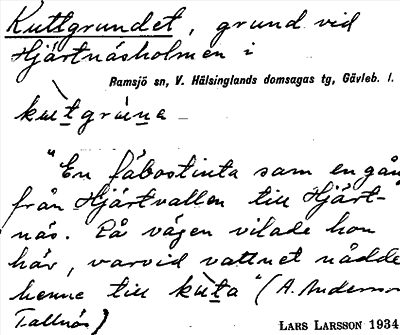 Kuttgrundet, grund vid
Hjärtnäsholmen i
Ramsjö sn, V. Hälsinglands domsagas tg, Gävleb. l.
kùtgrúna
"En fäbostinta sam en gån
från Hjärtvallen till Hjärt-
näs. På vägen vilade hon
här, varvid vattnet nådde
henne till kùta" (A. Anderson
Tallnäs)
LARS LARSSON 1934